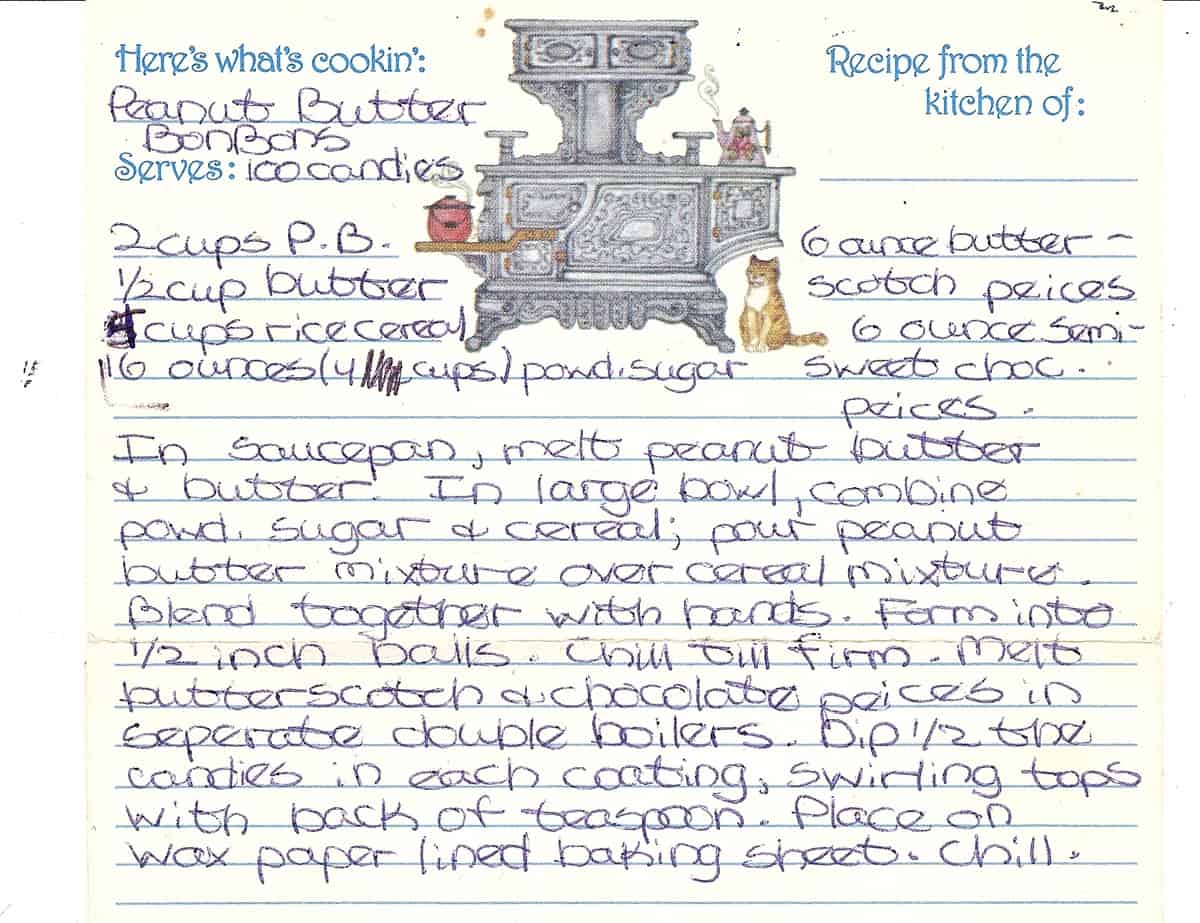 Here's what's cookin':
Peanut Butter
BonBons
Serves: 100 candies
Recipe from the
kitchen of:
2 cups P.B.
1/2 cup butter
4 cups rice cereal
16 ounces (4 cups) powd. sugar
6 ounce butter-
scotch peices
6 ounce semi-
sweet choc.
peices.
In saucepan, melt peanut butter
& butter. In large bowl, combine
powd. sugar & cereal; pour peanut
butter mixture over cereal mixture.
Blend together with hands. Form into
1/2 inch balls. Chill till firm. Melt
butterscotch & chocolate peices in
seperate double boilers. Dip 1/2 the
candies in each coating, swirling tops
with back of teaspoon. Place on
wax paper lined baking sheet. Chill.